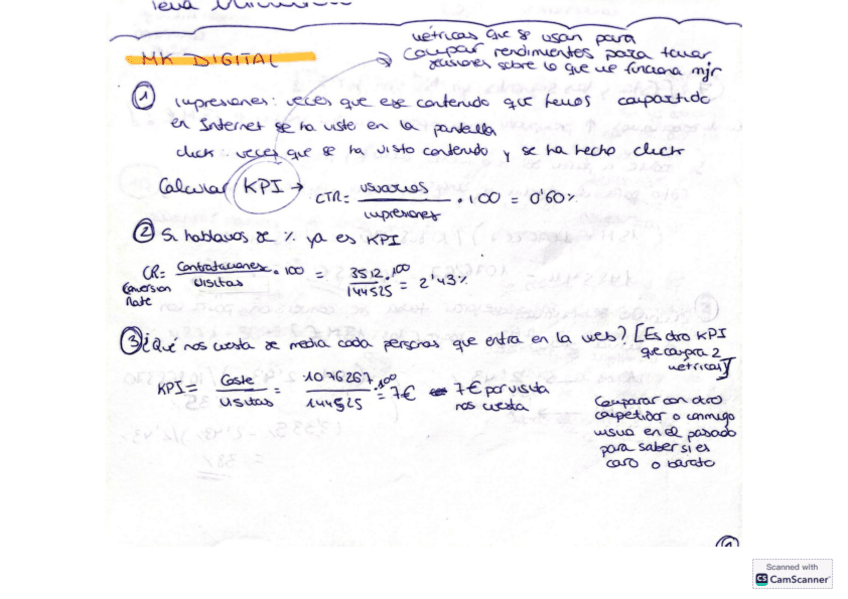 métricas que se usan para
MK DIGITAL
compar rendimientos para tomar
decisiones sobre lo que me funciona mjr
① impresiones: veces que ese contenido que hemos compartido
en Internet se ha visto en la pantalla
click: veces que se ha visto contenido y se ha hecho click
Calcular KPI → CTR = usuarios / impresiones · 100 = 0'60%
② Si hablamos de % ya es KPI
CR = Contrataciones / visitas · 100 = 3512 · 100 / 144525 = 2'43%
Conversion
Rate
③ ¿Qué nos cuesta de media cada persona que entra en la web? [Es otro KPI
que compra 2
métricas]
KPI = Coste / visitas = 1076267 · 100 / 144525 = 7€ 7€ por visita
nos cuesta
Comparar con otro
competidor o conmigo
misma en el pasado
para saber si es
caro o barato
Scanned with
CS CamScanner